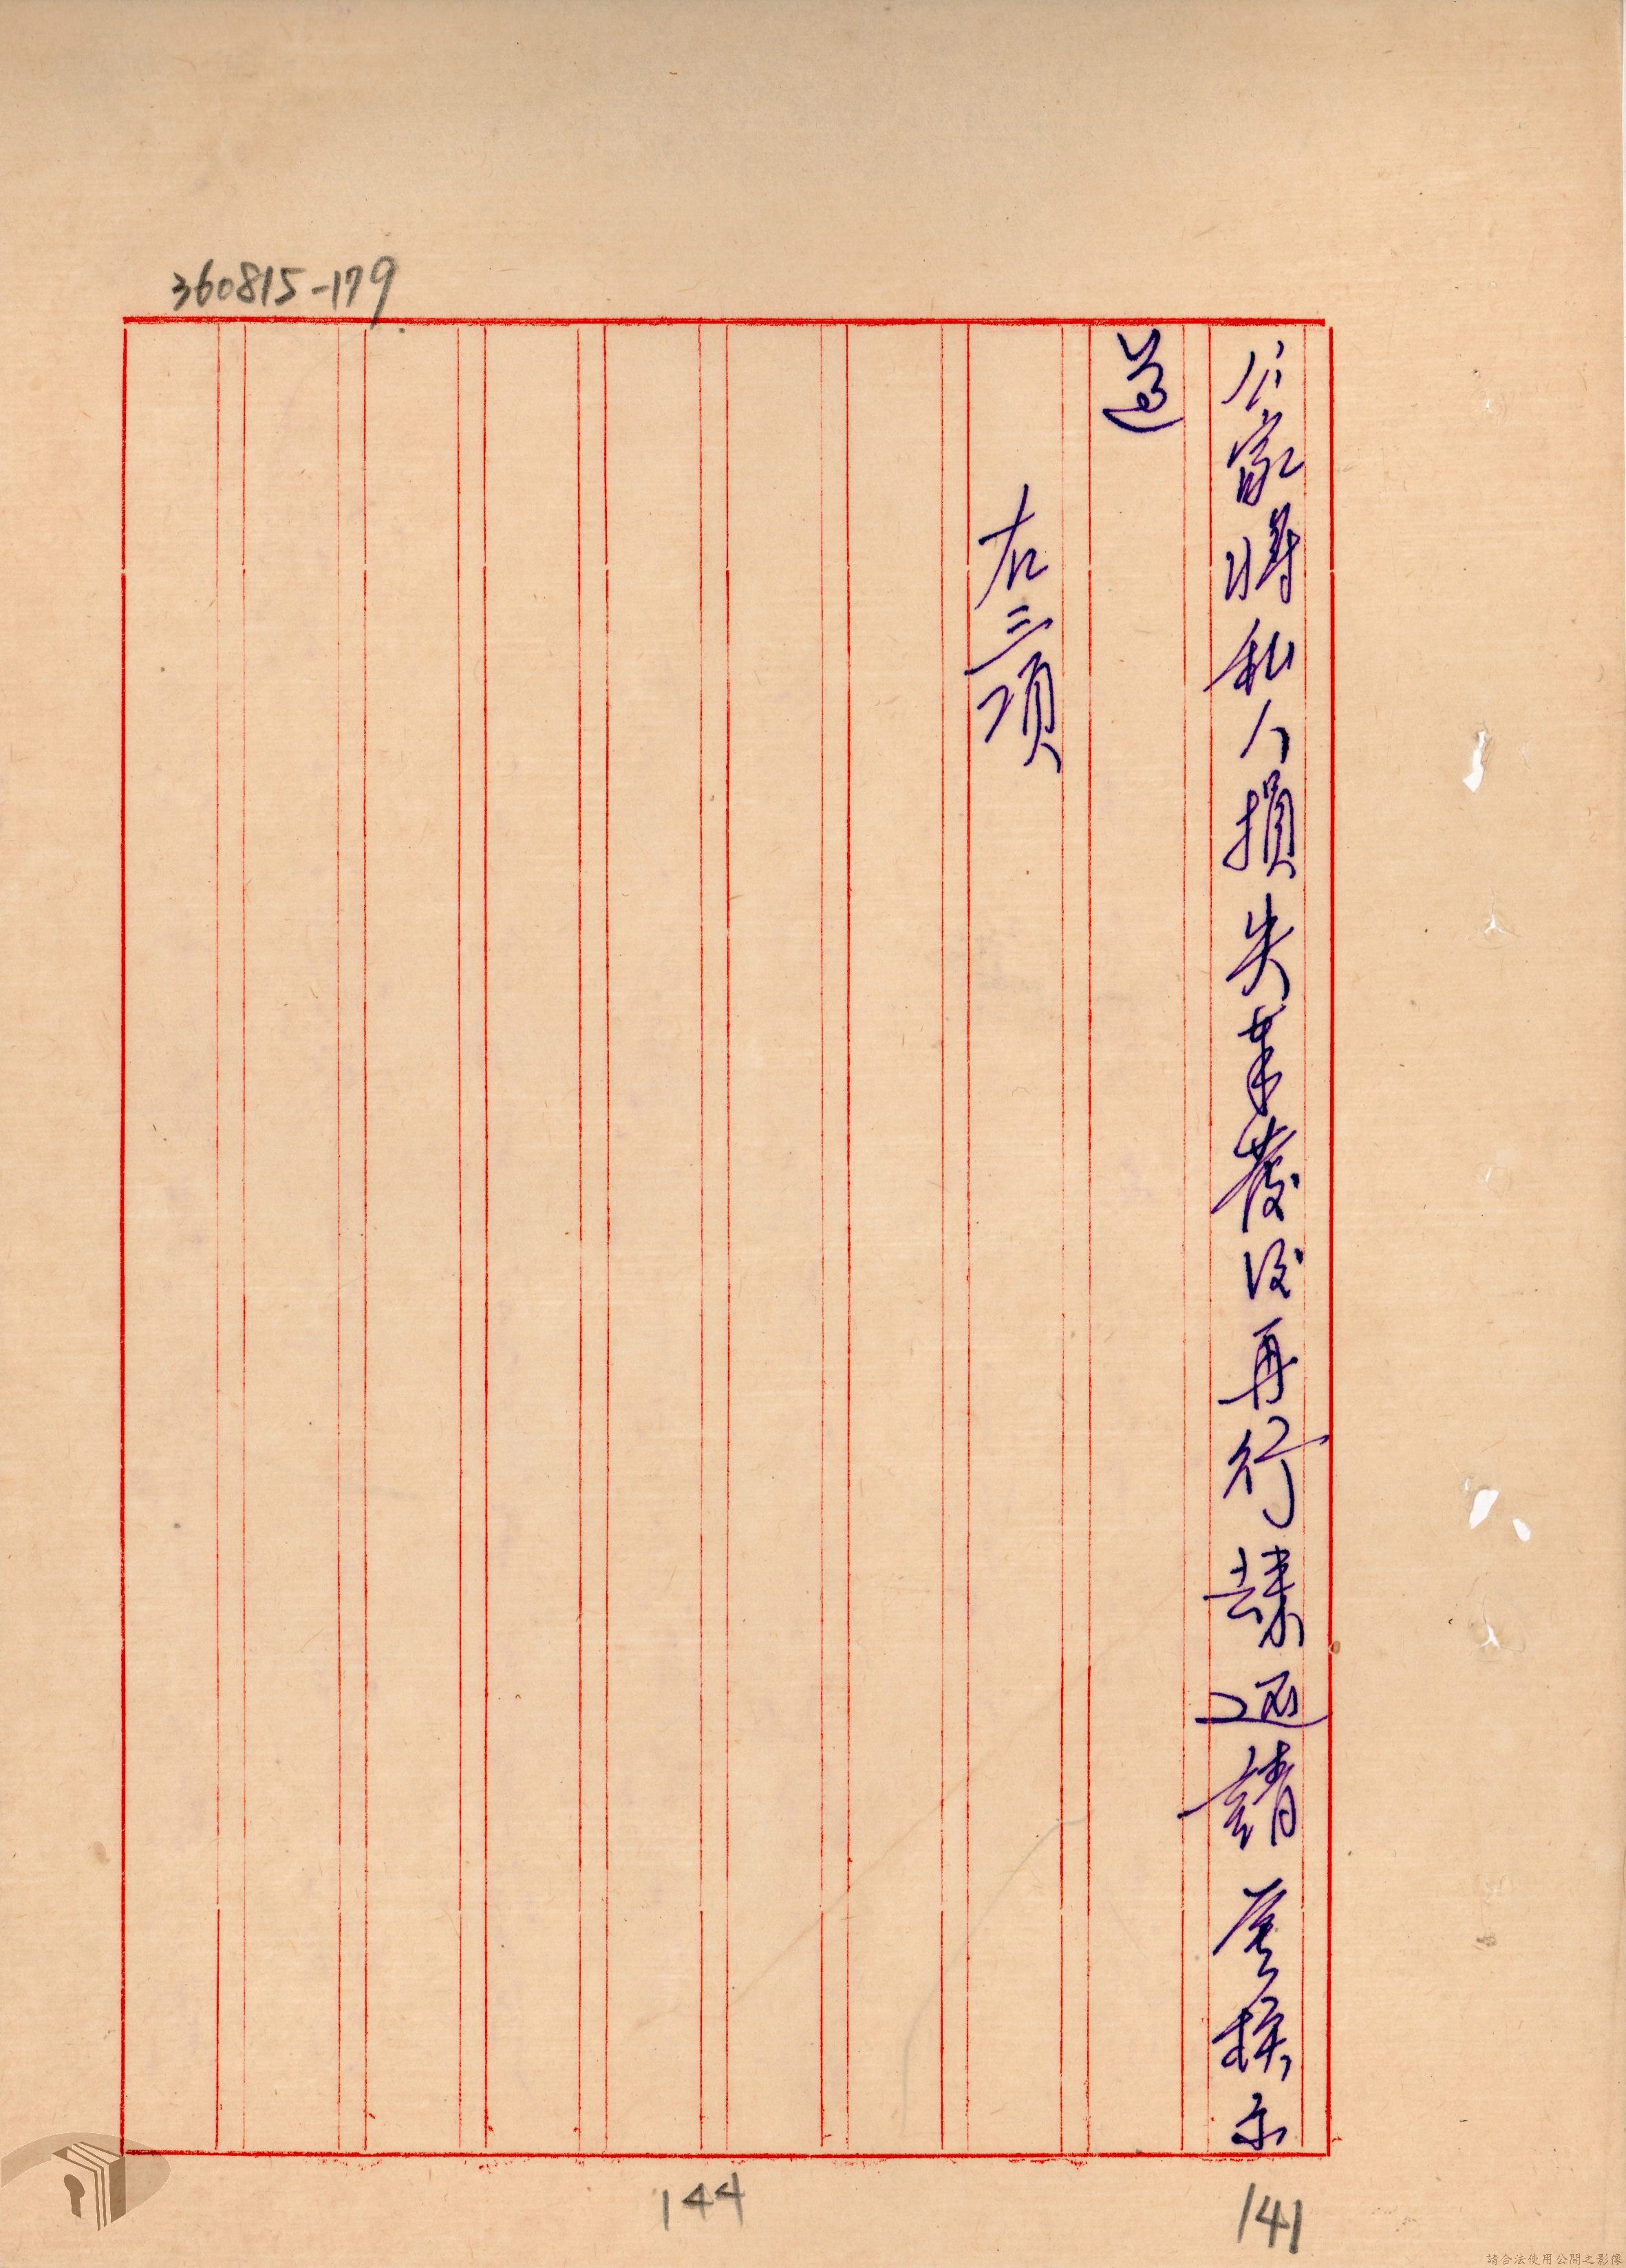 360815-179
公家將私人損失業發後再行辦理請應採示
道
右三項
144
141
請合法使用公開之影像